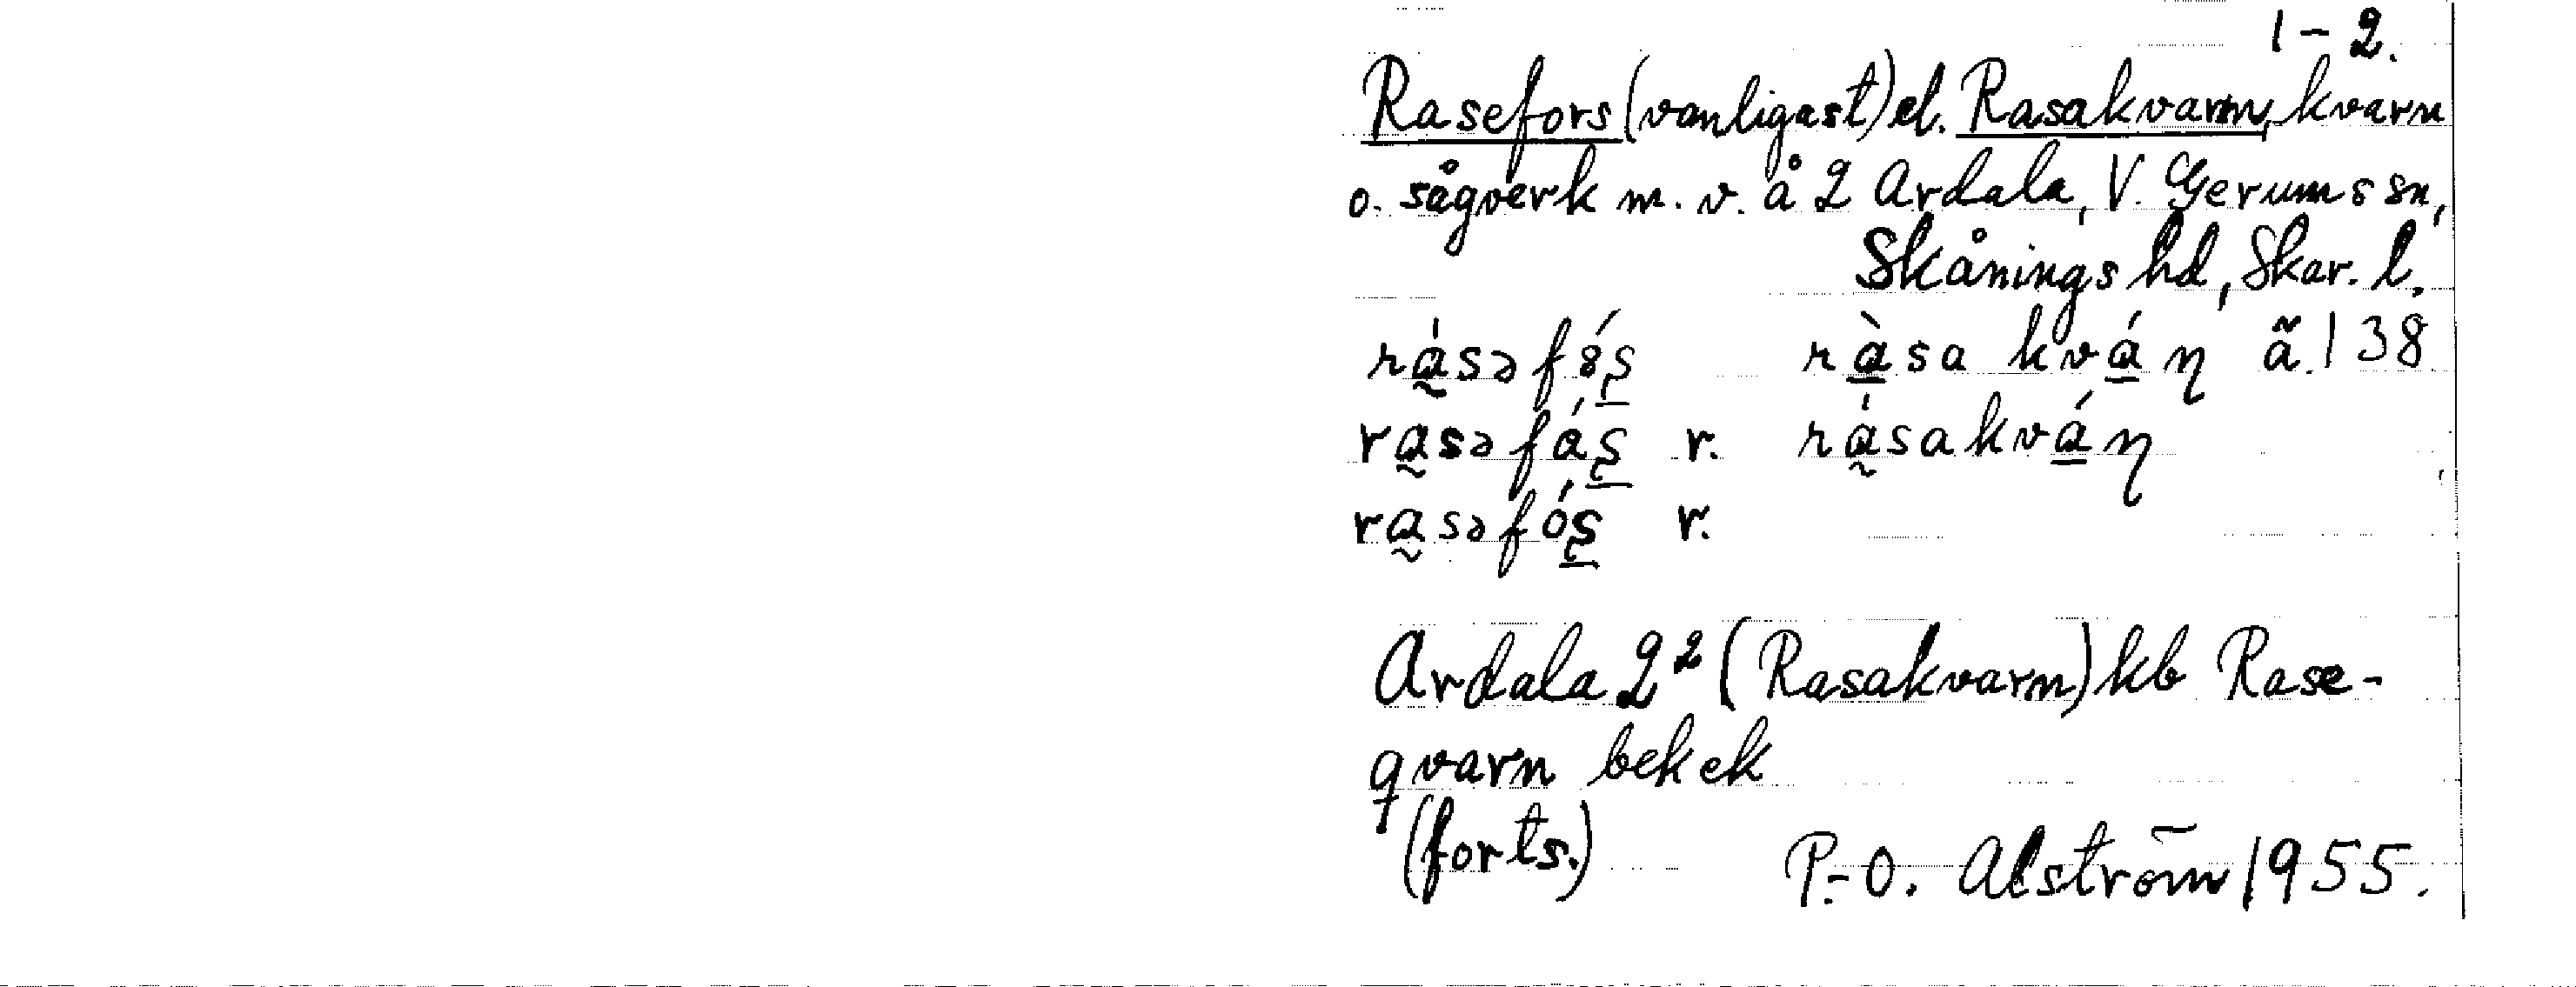 1-2.
Rasefors (vanligast) el. Rasakvarn, kvarn
o. sågverk m. v. å 2 Ardala, V. Gerums sn,
Skånings hd, Skar. l.
ràsəfó̀s̨ ràsa kváη ã. 138
rasəfás̨ r. ràsakváη
rasəfós̨ r.
Ardala 2² (Rasakvarn) kb Rase-
qvarn bek ek
(forts.) P.-O. Alström 1955.